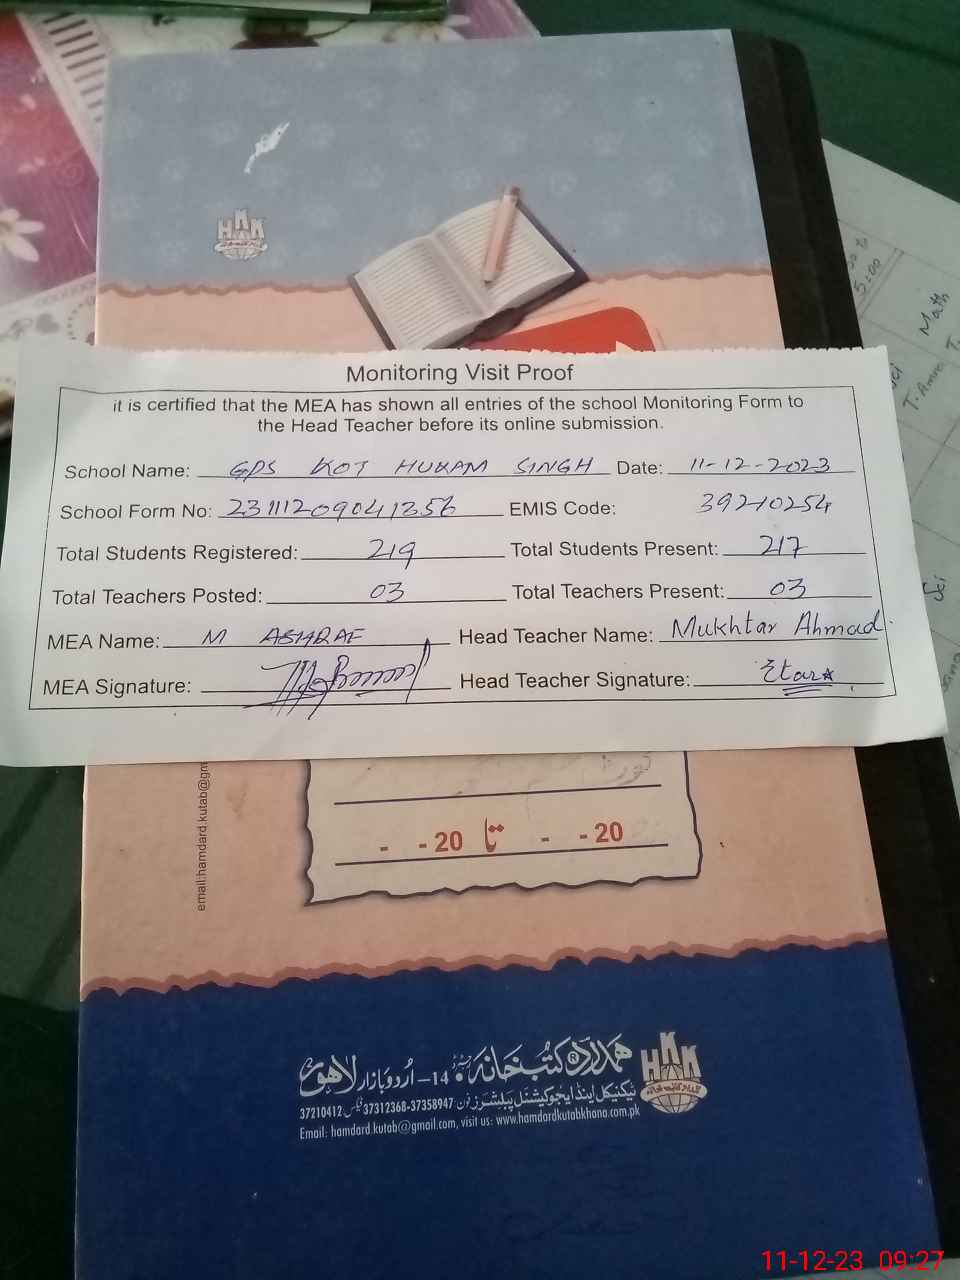 HKK
Monitoring Visit Proof
it is certified that the MEA has shown all entries of the school Monitoring Form to
the Head Teacher before its online submission.
School Name: GPS KOT HUKAM SINGH Date: 11-12-2023
School Form No: 23111209041356 EMIS Code: 39210254
Total Students Registered: 219 Total Students Present: 217
Total Teachers Posted: 03 Total Teachers Present: 03
MEA Name: M ASHRAF Head Teacher Name: Mukhtar Ahmad.
MEA Signature: Head Teacher Signature:
email:hamdard.kutab@gm
- - 20 تا - - 20
ہمدرد کتب خانہ ® 14– اُردو بازار لاہور
ٹیکنیکل اینڈ ایجوکیشنل پبلشرز فون 37358947-37312368 فیکس 37210412
Email: hamdard.kutab@gmail.com, visit us: www.hamdardkutabkhana.com.pk
HKK
5:00
Math
T. Amra
11-12-23 09:27